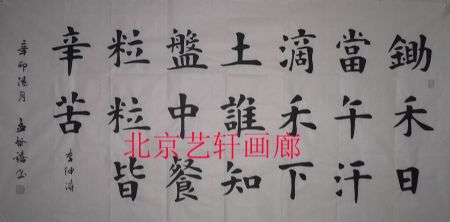 鋤禾日
當午汗
滴禾下
土誰知
盤中餐
粒粒皆
辛苦
李绅诗
辛卯
北京艺轩画廊